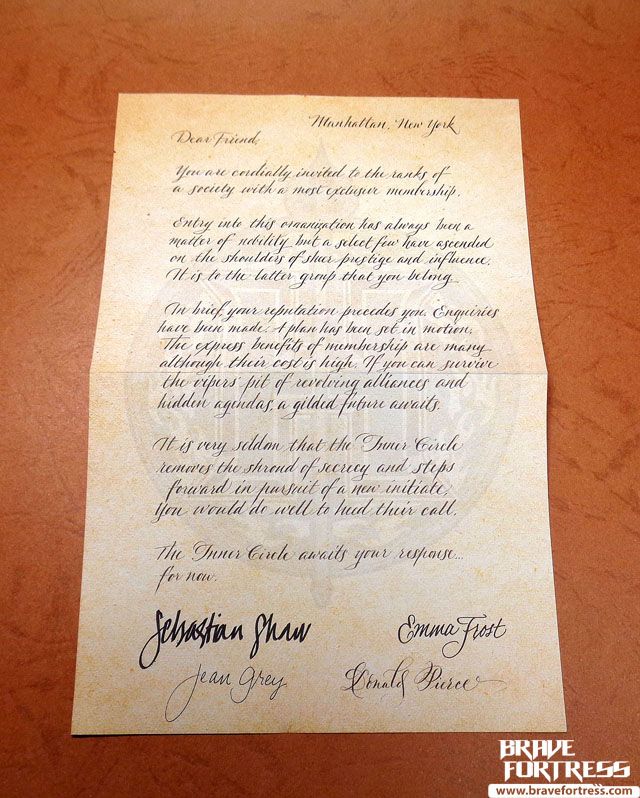 Manhattan, New York
Dear Friend,
You are cordially invited to the ranks of
a society with a most exclusive membership.
Entry into this organization has always been a
matter of nobility, but a select few have ascended
on the shoulders of sheer prestige and influence.
It is to the latter group that you belong.
In brief, your reputation precedes you. Enquiries
have been made. A plan has been set in motion.
The express benefits of membership are many
although their cost is high. If you can survive
the vipers' pit of revolving alliances and
hidden agendas, a gilded future awaits.
It is very seldom that the Inner Circle
removes the shroud of secrecy and steps
forward in pursuit of a new initiate.
You would do well to heed their call.
The Inner Circle awaits your response...
for now.
Sebastian Shaw
Emma Frost
Jean Grey
Donald Pierce
BRAVE
FORTRESS
www.bravefortress.com